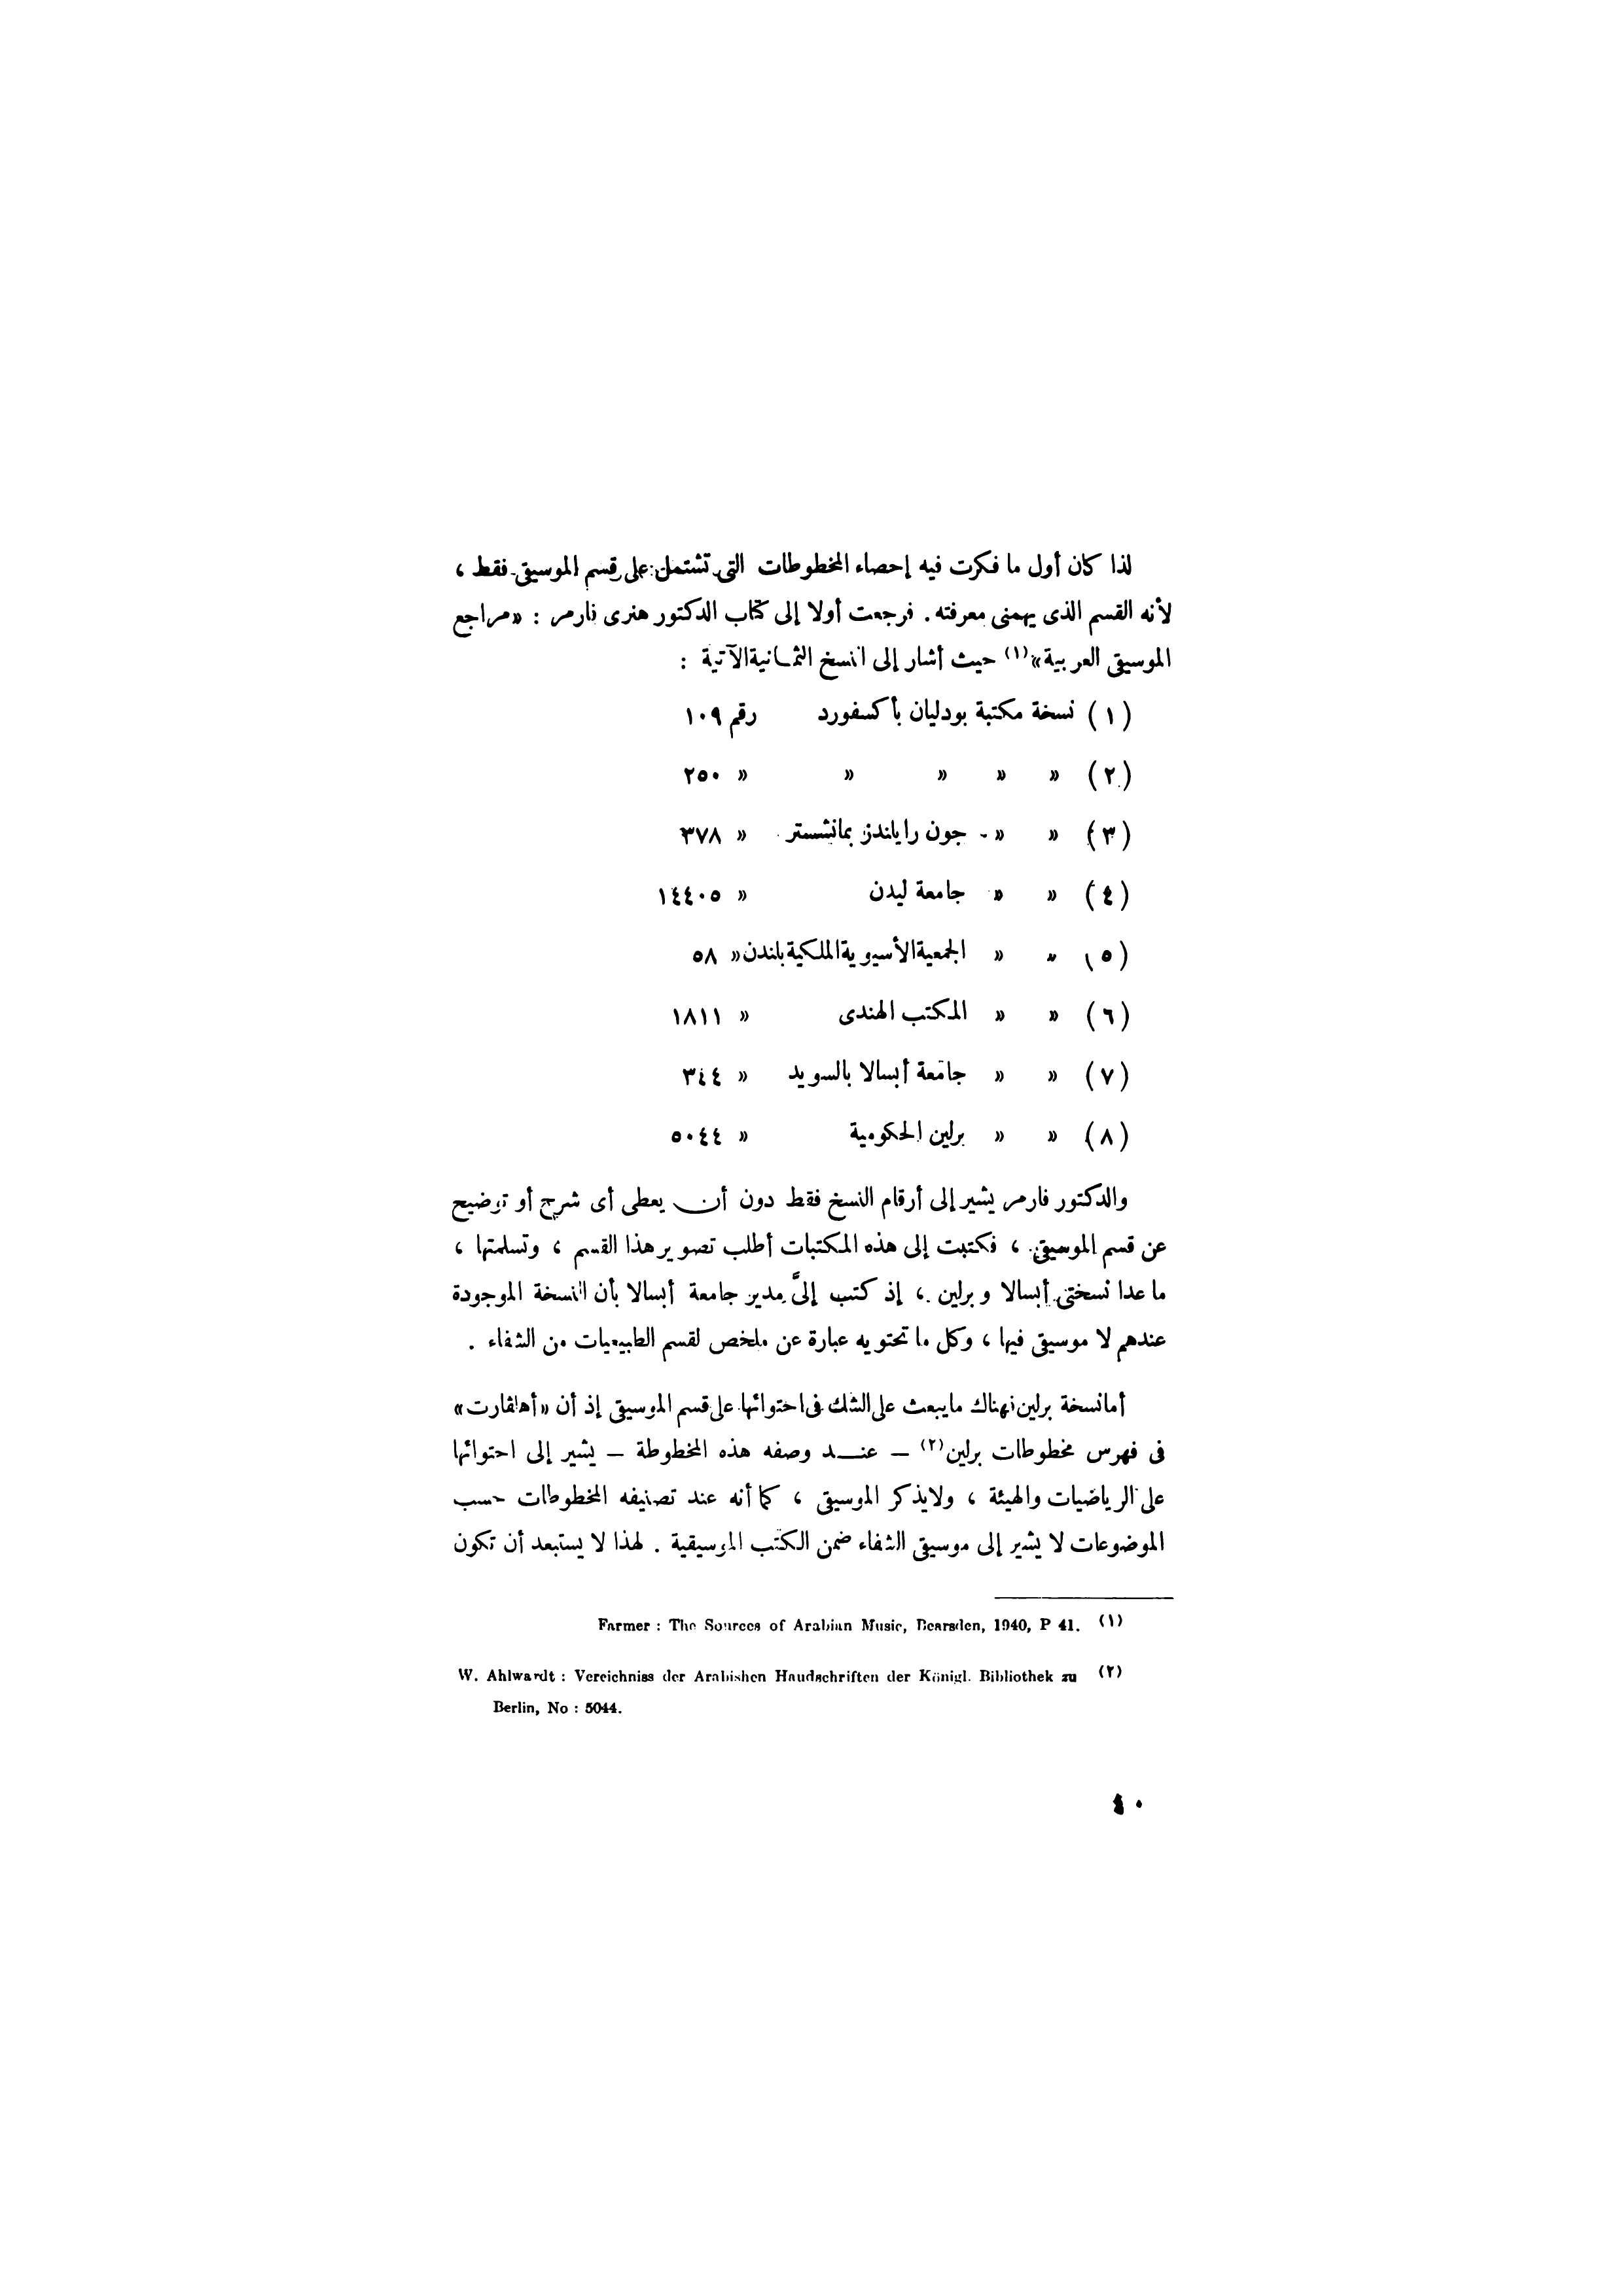 لذا كان أول ما فكرت فيه إحصاء المخطوطات التى تشتمل على قسم الموسيقى فقط ،
لأنه القسم الذى يهمنى معرفته . فرجعت أولا إلى كتاب الدكتور هنرى فارمر : «مراجع
الموسيقى العربية»(١) حيث أشار إلى النسخ الثمـانية الآتية :
(١) نسخة مكتبة بودليان بأكسفورد رقم ١٠٩
(٢) » » » » » ٢٥٠
(٣) » » جون رايلندز بمانشستر » ٣٧٨
(٤) » » جامعة ليدن » ١٤٤٠٥
(٥) » » الجمعية الأسيوية الملكية بلندن » ٥٨
(٦) » » المكتب الهندى » ١٨١١
(٧) » » جامعة أبسالا بالسويد » ٣٤٤
(٨) » » برلين الحكومية » ٥٠٤٤
والدكتور فارمر يشير إلى أرقام النسخ فقط دون أن يعطى أى شرح أو توضيح
عن قسم الموسيقى ، فكتبت إلى هذه المكتبات أطلب تصوير هذا القسم ، وتسلمتها ،
ما عدا نسختى أبسالا وبرلين ، إذ كتب إلىَّ مدير جامعة أبسالا بأن النسخة الموجودة
عندهم لا موسيقى فيها ، وكل ما تحتويه عبارة عن ملخص لقسم الطبيعيات من الشفاء .
أما نسخة برلين فهناك ما يبعث على الشك فى احتوائها على قسم الموسيقى إذ أن «أهلڤارت»
فى فهرس مخطوطات برلين(٢) — عنـــد وصفه هذه المخطوطة — يشير إلى احتوائها
على الرياضيات والهيئة ، ولا يذكر الموسيقى ، كما أنه عند تصنيفه المخطوطات حسب
الموضوعات لا يشير إلى موسيقى الشفاء ضمن الكتب الموسيقية . لهذا لا يستبعد أن تكون
(١) Farmer : The Sources of Arabian Music, Bearsden, 1940, P 41.
(٢) W. Ahlwardt : Vereichniss der Arabishen Haudschriften der Königl. Bibliothek zu
Berlin, No : 5044.
٤٠